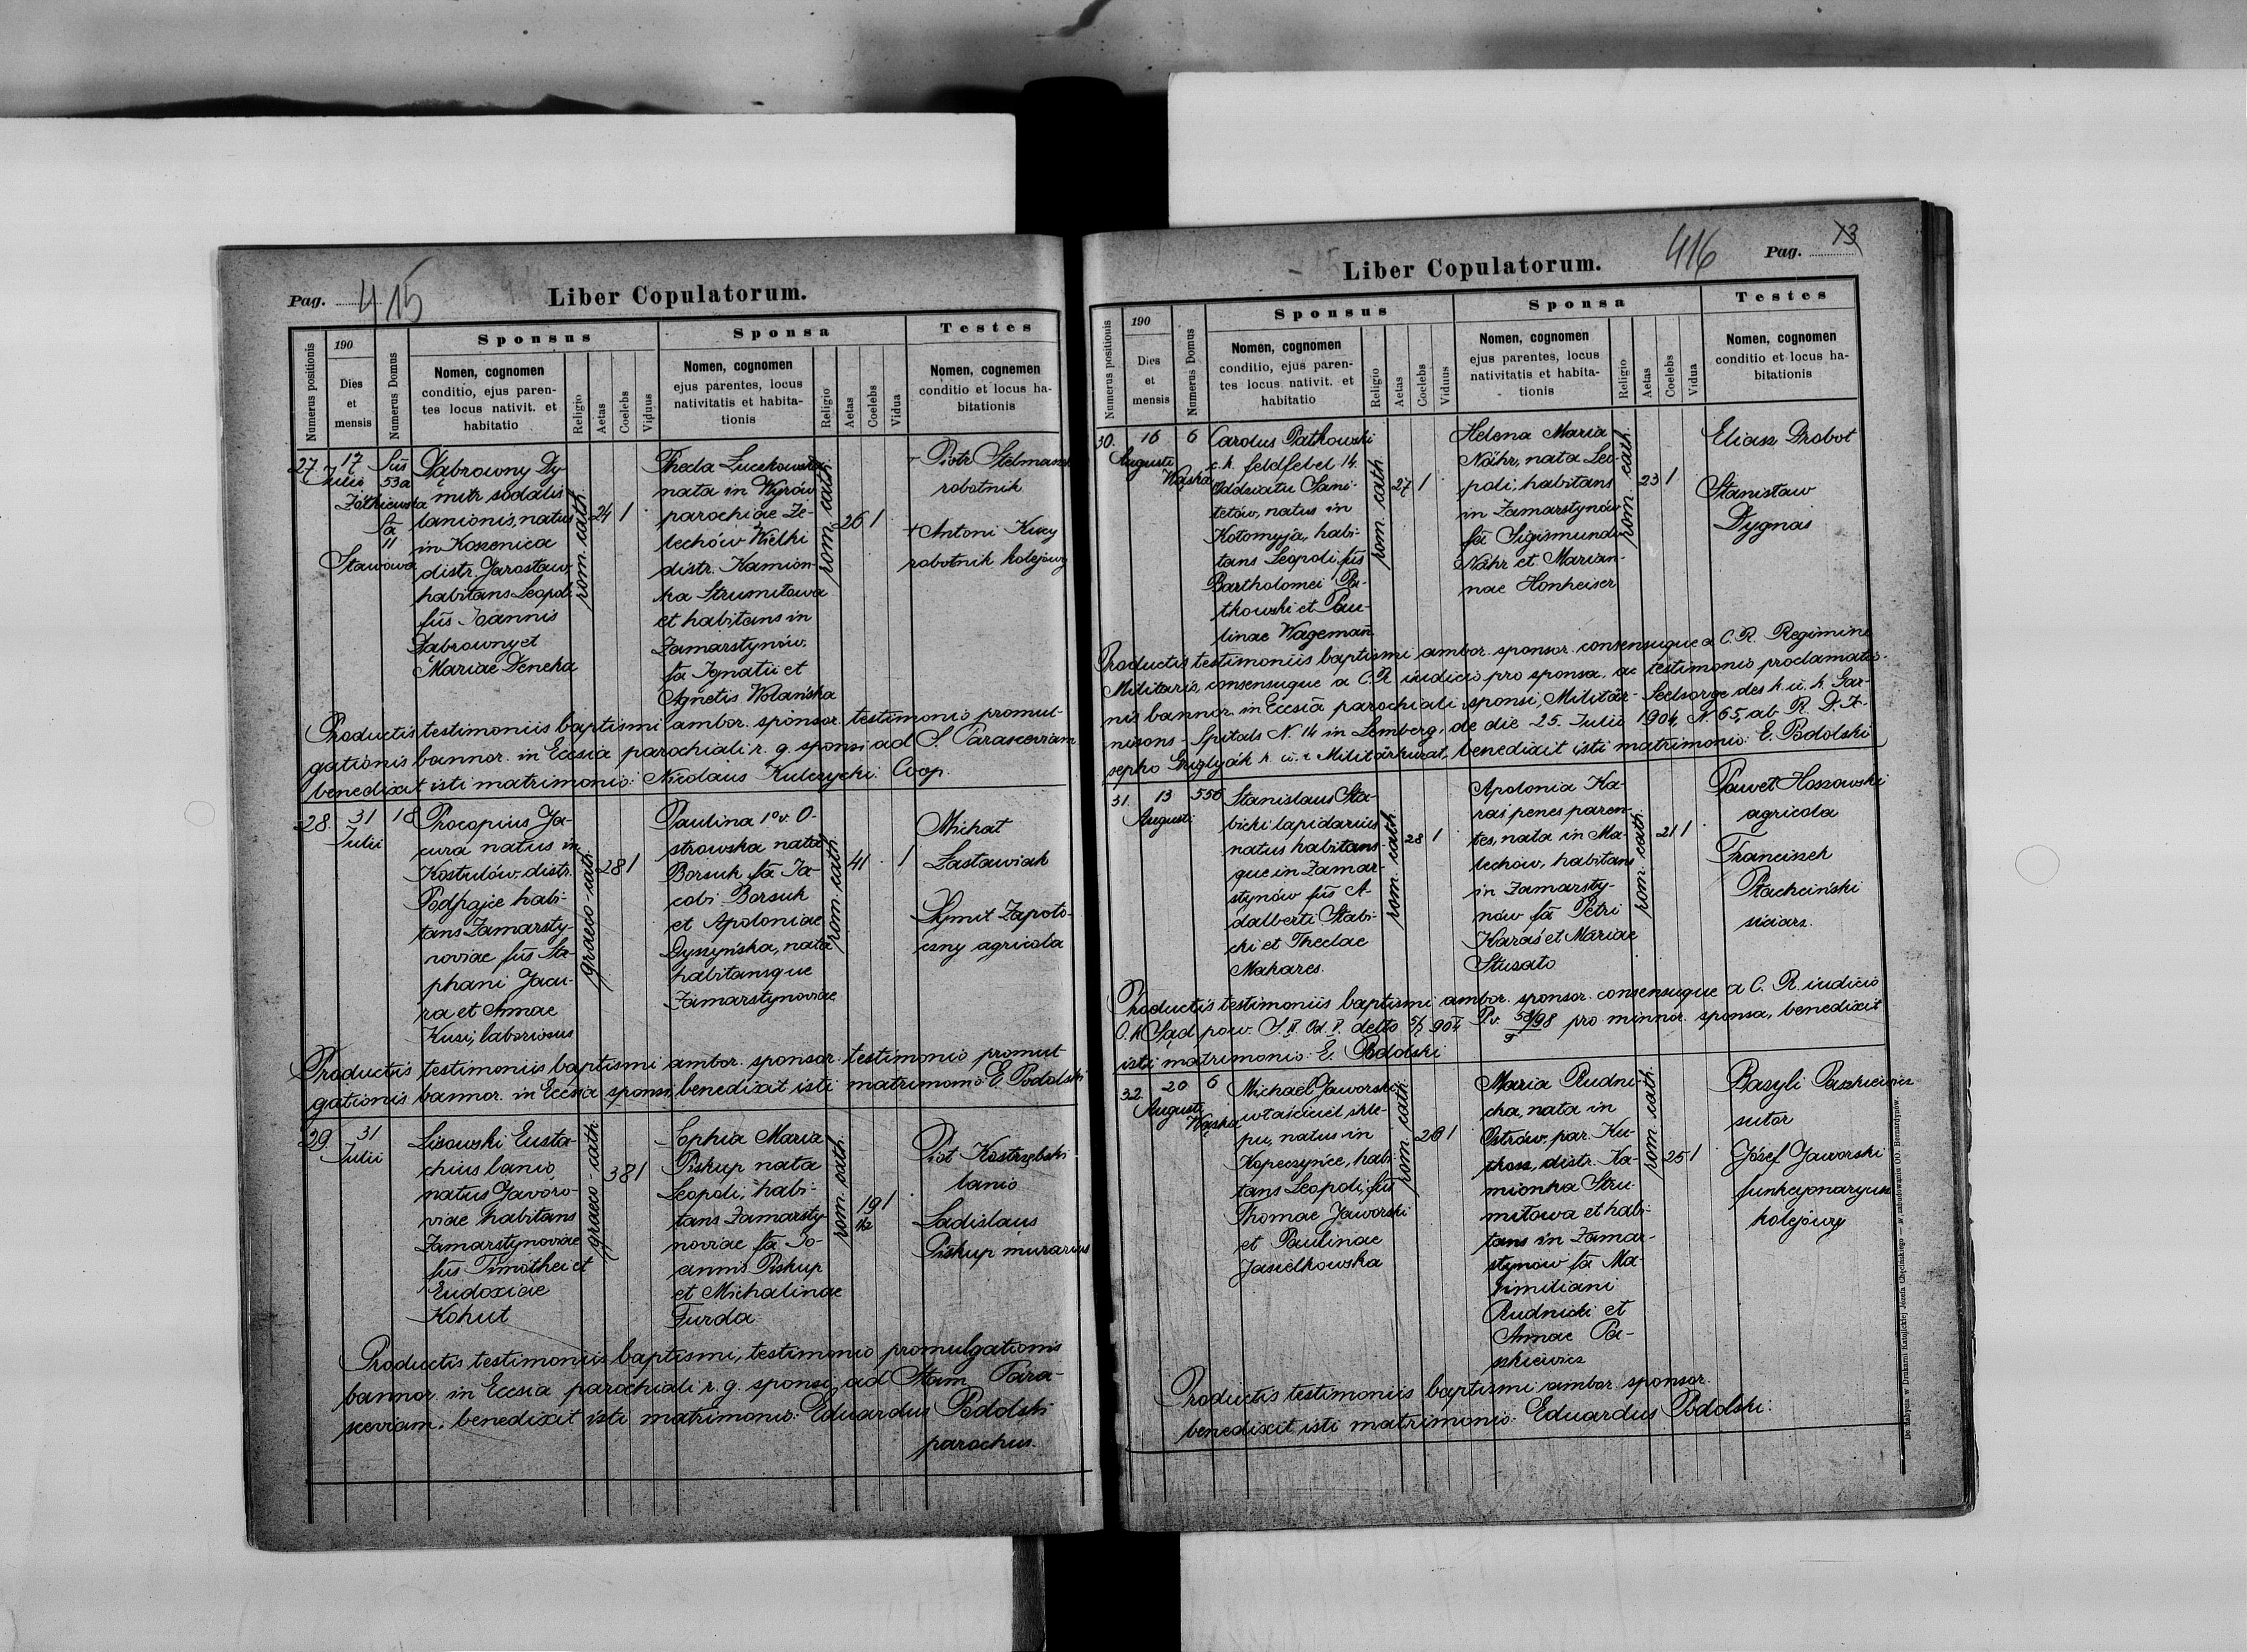 Pag. 415
Liber Copulatorum.
Numerus positionis
190
Dies
et
mensis
Numerus Domus
Sponsus
Nomen, cognomen
conditio, ejus paren-
tes locus nativit. et
habitatio
Religio
Aetas
Coelebs
Viduus
Sponsa
Nomen, cognomen
ejus parentes, locus
nativitatis et habita-
tionis
Religio
Aetas
Coelebs
Vidua
Testes
Nomen, cognemen
conditio et locus ha-
bitationis
27.
17
Julii
fũs
53a
Żółkiewska
fã
11
Stawowa
Dąbrowny Dy-
mitr sodalis
lanionis, natus
in Koszenica
distr. Jarosław,
habitans Leopoli
fũs Joannis
Dąbrowny et
Mariae Deneka
rom. cath.
24
1
Thecla Luczkowska
nata in Wyrów
parochiae Że-
lechów Wielki
distr. Kamion-
ka Strumiłowa
et habitans in
Zamarstynów.
fa Ignatii et
Agnetis Wolańska
rom. cath.
26
1
+ Piotr Stelmaszek
robotnik
+ Antoni Kucy
robotnik kolejowy
Productis testimoniis baptismi ambor. sponsor. testimonio promul-
gationis bannor. in Eccsia parochiali r. g. sponsi ad S. Parasceviam
benedixit isti matrimonio: Nicolaus Kulczycki. Coop.
28.
31
Julii
18
Procopius Ja-
cura natus in
Kostulów, distr.
Podhajce habi-
tans Zamarsty-
noviae fũs Sta-
phani Jacu-
ra et Annae
Kusi, laboriosus
graeco-cath.
28
1
Paulina 1º v. O-
strowska nata
Borsuk fã Ja-
cobi Borsuk
et Apoloniae
Dyszyńska, nata
habitansque
Zamarstynoviae
rom. cath.
41
1
Michał
Zastawiak
Dymit Zapoto-
czny agricola
Productis testimoniis baptismi ambor. sponsor. testimonio promul-
gationis bannor. in Eccsia sponsi, benedixit isti matrimonio: E. Podolski
29
31
Julii
Lisowski Eusta-
chius lanio
natus Javoro-
viae habitans
Zamarstynoviae
fũs Timothei et
Eudoxiae
Kohut
graeco-cath.
38
1
Sophia Maria
Piskup nata
Leopoli, habi-
tans Zamarsty-
noviae fã Jo-
annis Piskup
et Michalinae
Furda
rom. cath.
19
1/2
1
Piot Kostrzębski
lanio
Ladislaus
Piskup murarius
Productis testimoniis baptismi, testimonio promulgationis
bannor. in Eccsia parochiali r. g. sponsi ad Stam Para-
sceviam, benedixit isti matrimonio: Eduardus Podolski
parochus.
Liber Copulatorum.
416
Pag. 13
Numerus positionis
190
Dies
et
mensis
Numerus Domus
Sponsus
Nomen, cognomen
conditio, ejus paren-
tes locus nativit. et
habitatio
Religio
Aetas
Coelebs
Viduus
Sponsa
Nomen, cognomen
ejus parentes, locus
nativitatis et habita-
tionis
Religio
Aetas
Coelebs
Vidua
Testes
Nomen, cognomen
conditio et locus ha-
bitationis
30.
16
Augusti
6
Wąska
Carolus Patkowski
c. k. feldfebel 14.
Oddziału Sani-
tetów, natus in
Kołomyja, habi-
tans Leopoli, fũs
Bartholomei Pa-
tkowski et Pau-
linae Wagemañ
rom. cath.
27
1
Helena Maria
Nähr, nata Leo-
poli, habitans
in Zamarstynów
fã Sigismundi
Nähr et Marian-
nae Honheiser
rom. cath.
23
1
Eliasz Drobot
Stanisław
Dygnas
Productis testimoniis baptismi ambor. sponsor. consensuque a C. R. Regimine
Militaris, consensuque a C. R. iudicio pro sponsa, ac testimonio proclamatio-
nis bannor. in Eccsia parochiali sponsi, Militär-Seelsorge des k. u. k. Gar-
nisons-Spitals N. 14 in Lemberg, de die 25. Julii 1904, N 65, ab R. D. Jo-
sepho k. u. k. Militärkurat, benedixit isti matrimonio: E. Podolski
31.
13
Augusti
556
Stanislaus Sta-
bicki lapidarius
natus habitans-
que in Zamar-
stynów fũs A-
dalberti Stabi-
cki et Theclae
Makares.
rom. cath.
28
1
Apolonia Ka-
raś penes paren-
tes, nata in Ma-
lechów, habitans
in Zamarsty-
nów fã Petri
Karaś et Mariae
Stusato
rom. cath.
21
1
Paweł Hossowski
agricola
Franciszek
Płachciński
Productis testimoniis baptismi ambor. sponsor. consensuque a C. R. iudicio
C. k. Sąd pow. S. II. Od. V. delto 5/7 904 P. v. 58/98 pro minnor. sponsa, benedixit
isti matrimonio: E. Podolski
32.
20
Augusti
6
Wąska
Michael Jaworski
właściciel skle-
pu, natus in
Kopeczyńce, habi-
tans Leopoli, fũs
Thomae Jaworski
et Paulinae
Jasielkowska
rom. cath.
26
1
Maria Rudni-
cka, nata in
Ostrów, par. Ku-
tkosz, distr. Ka-
mionka Stru-
miłowa et habi-
tans in Zamar-
stynów fã Ma-
ximiliani
Rudnicki et
Annae Pa-
szkiewicz
rom. cath.
25
1
Basyli Paszkiewicz
sutor
Józef Jaworski
funkcyonaryusz
kolejowy
Productis testimoniis baptismi ambor. sponsor.
benedixit isti matrimonio: Eduardus Podolski.
Do nabycia w Drukarni Katolickiej Józefa Chęcińskiego — w zabudowaniu OO. Bernardynów.